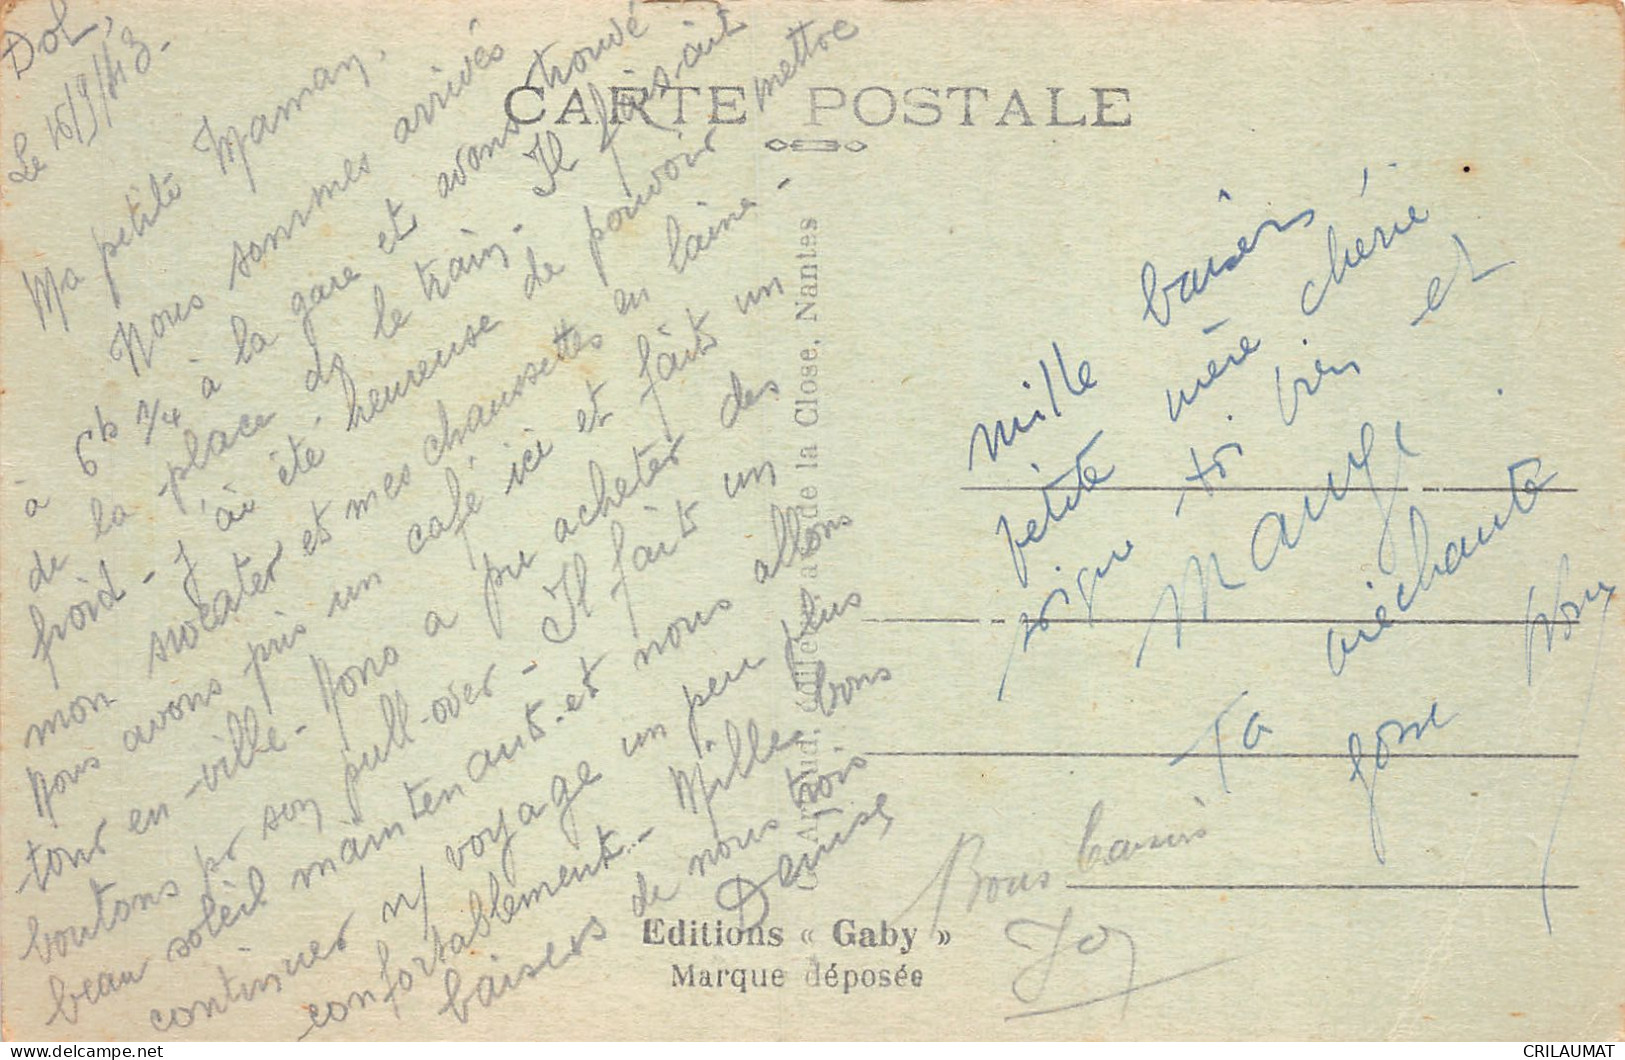 Dol,
Le 15/9/43-
Ma petite Maman,
Nous sommes arrivés
à 6h 1/4 à la gare et avons trouvé
de la place ds le train. Il faisait
froid - J'ai été heureuse de pouvoir mettre
mon sweater et mes chaussettes en laine -
Nous avons pris un café ici et faits un
tour en ville - Nono a pu acheter des
boutons pr son pull-over - Il fait un
beau soleil maintenant et nous allons
continuer n/ voyage un peu plus
confortablement - Mille bons
baisers de nous trois
Denise
CARTE POSTALE
de la Close, Nantes
Editions « Gaby »
Marque déposée
mille baisers
petite mère chérie
soigne toi bien et
Mange
Ta méchante
gosse
Bons baisers
Jo
CRILAUMAT